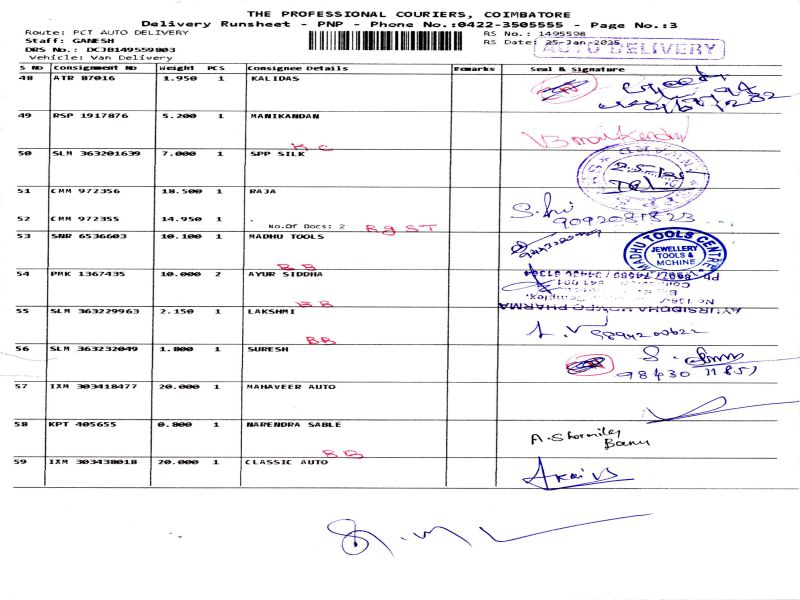 THE PROFESSIONAL COURIERS, COIMBATORE
Delivery Runsheet - PNP - Phone No.:0422-3505555 - Page No.:3
Route: PCT AUTO DELIVERY
RS No.: 1495598
Staff: GANESH
RS Date: 25-Jan-2025
AUTO DELIVERY
DRS No.: DC3B149559803
Vehicle: Van Delivery
S No Consignment No Weight PCS Consignee Details Remarks Seal & Signature
48 ATR 87016 1.950 1 KALIDAS
49 RSP 1917876 5.200 1 MANIKANDAN
MC
50 SLM 363201639 7.000 1 SPP SILK
51 CMM 972356 18.500 1 RAJA
52 CMM 972355 14.950 1 .
No.Of Docs: 2
9092081823
53 SNR 6536603 10.100 1 MADHU TOOLS
MADHU TOOLS CENTRE
JEWELLERY
TOOLS &
MCHINE
BB
54 PMK 1367435 10.000 2 AYUR SIDDHA
BB
AYURSIDDHA HOMEO PHARMA
55 SLM 363229963 2.150 1 LAKSHMI
9894200622
BB
56 SLM 363232049 1.800 1 SURESH
98430 11851
57 IXM 303418477 20.000 1 MAHAVEER AUTO
58 KPT 405655 0.800 1 NARENDRA SABLE
A. Sharmiley
Banu
BB
59 IXM 303438018 20.000 1 CLASSIC AUTO